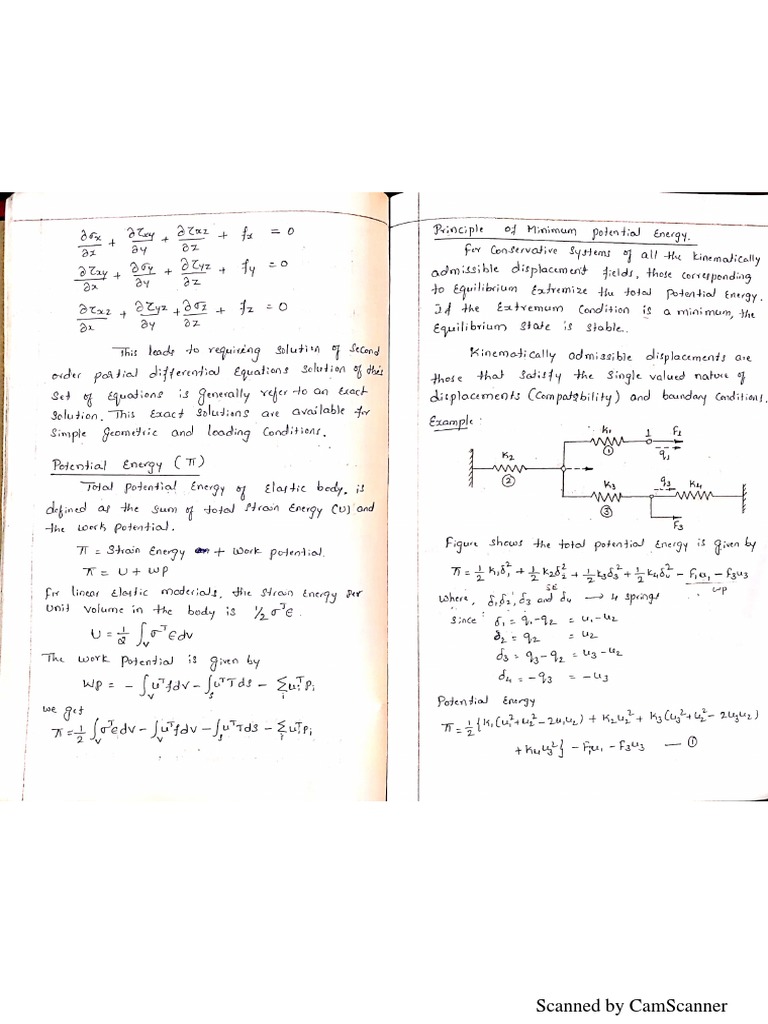 ∂σx/∂x + ∂τxy/∂y + ∂τxz/∂z + fx = 0
∂τxy/∂x + ∂σy/∂y + ∂τyz/∂z + fy = 0
∂τxz/∂x + ∂τyz/∂y + ∂σz/∂z + fz = 0
This leads to requiring solution of second
order partial differential Equations solution of this
Set of Equations is generally refer to an Exact
solution. This Exact solutions are available for
simple geometric and loading Conditions.
Potential Energy (π)
Total potential Energy of Elastic body, is
defined as the sum of total Strain Energy (U) and
the work potential.
π = Strain Energy + Work potential.
π = U + WP
for linear Elastic materials, the strain Energy per
Unit volume in the body is 1/2 σᵀϵ.
U = 1/2 ∫v σᵀϵdv
The work Potential is given by
WP = - ∫v uᵀfdv - ∫s uᵀTds - Σi uiᵀPi
we get
π = 1/2 ∫v σᵀϵdv - ∫v uᵀfdv - ∫s uᵀTds - Σi uiᵀPi
Principle of Minimum potential Energy.
For Conservative Systems of all the Kinematically
admissible displacement fields, those corresponding
to Equilibrium Extremize the total Potential Energy.
If the Extremum Condition is a minimum, the
Equilibrium State is stable.
Kinematically admissible displacements are
those that satisfy the single valued nature of
displacements (Compatability) and boundary Conditions.
Example:
K1 1 F1
① q1
K2
②
K3 q3 K4
③
F3
Figure shows the total potential Energy is given by
π = 1/2 K1δ1² + 1/2 K2δ2² + 1/2 K3δ3² + 1/2 K4δ4² - F1u1 - F3u3
SE WP
where, δ1, δ2, δ3 and δ4 → 4 springs
since δ1 = q1-q2 = u1-u2
δ2 = q2 = u2
δ3 = q3-q2 = u3-u2
δ4 = -q3 = -u3
Potential Energy
π = 1/2 {K1(u1²+u2²-2u1u2) + K2u2² + K3(u3²+u2²-2u3u2)
+ K4u3²} - F1u1 - F3u3 — ①
Scanned by CamScanner